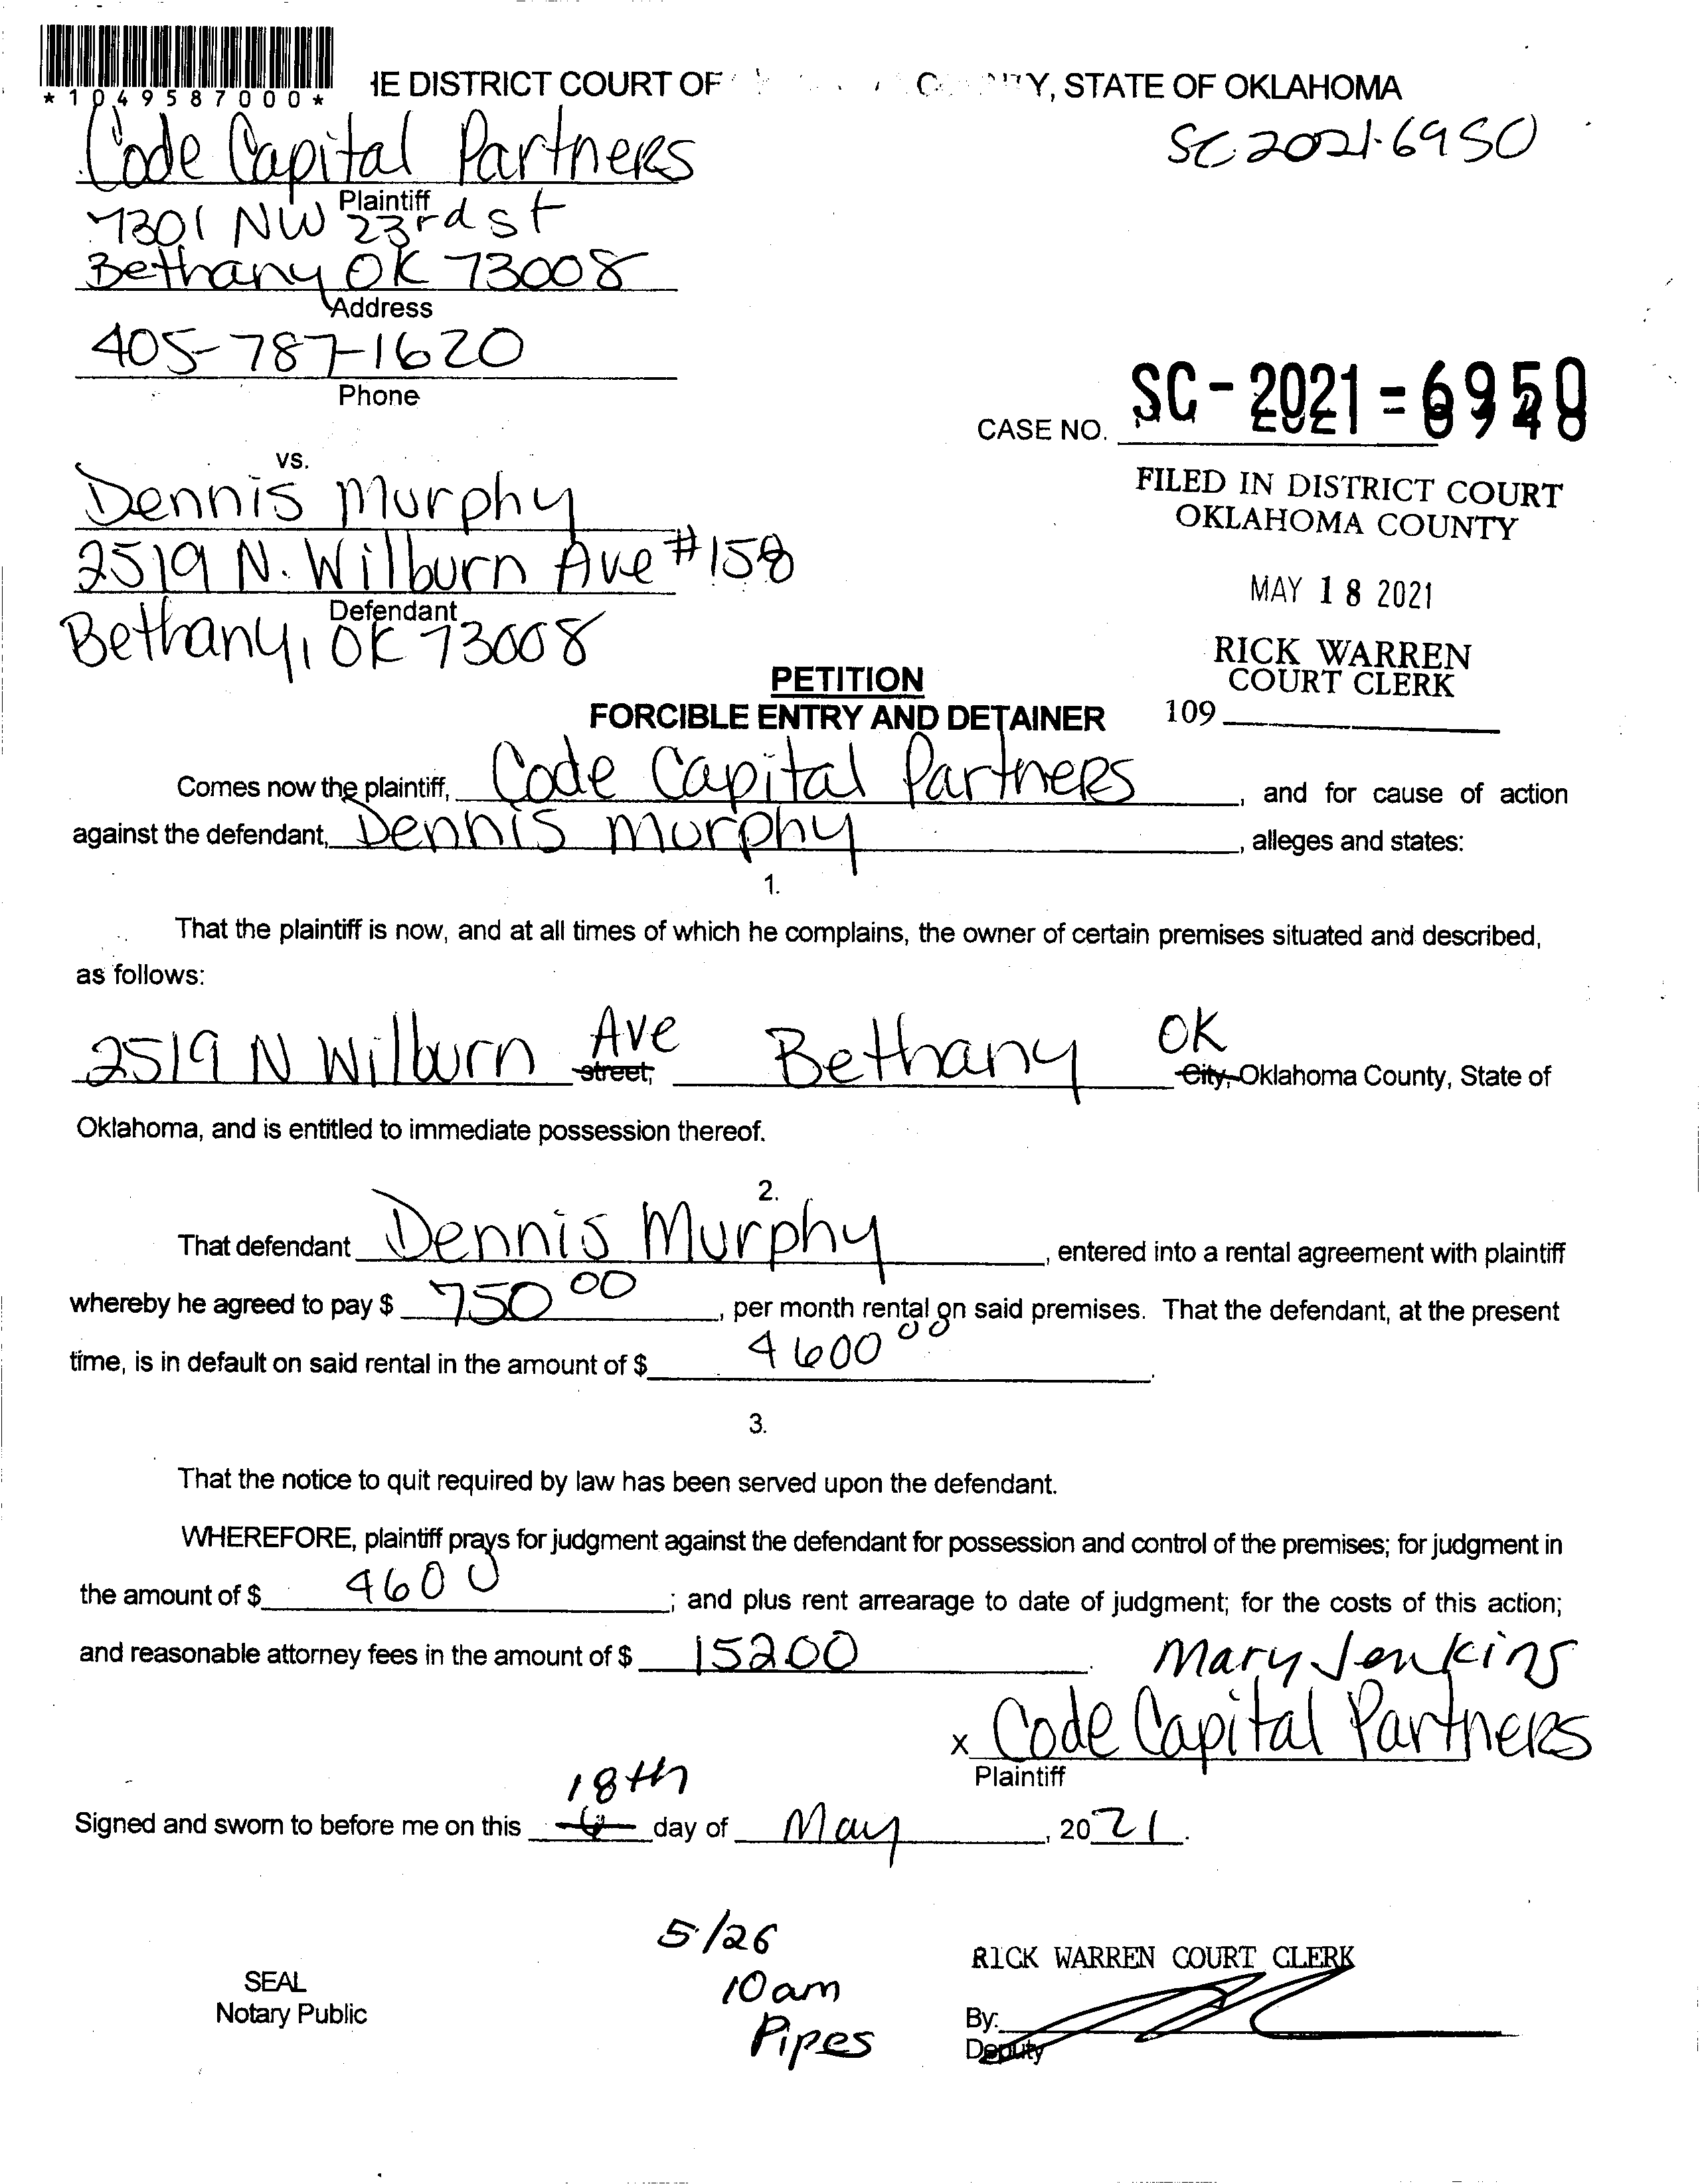 *1049587000*
IE DISTRICT COURT OF Y, STATE OF OKLAHOMA
Code Capital Partners
SC 2021-6950
Plaintiff
7301 NW 23rd St
Bethany OK 73008
Address
405-787-1620
Phone
CASE NO. SC-2021-6950
vs.
Dennis Murphy
2519 N. Wilburn Ave #158
Defendant
Bethany, OK 73008
FILED IN DISTRICT COURT
OKLAHOMA COUNTY
MAY 18 2021
RICK WARREN
COURT CLERK
109
PETITION
FORCIBLE ENTRY AND DETAINER
Comes now the plaintiff, Code Capital Partners, and for cause of action
against the defendant, Dennis Murphy, alleges and states:
1.
That the plaintiff is now, and at all times of which he complains, the owner of certain premises situated and described,
as follows:
2519 N Wilburn Ave street, Bethany OK City, Oklahoma County, State of
Oklahoma, and is entitled to immediate possession thereof.
2.
That defendant Dennis Murphy, entered into a rental agreement with plaintiff
whereby he agreed to pay $ 750 00, per month rental on said premises. That the defendant, at the present
time, is in default on said rental in the amount of $ 4600 00.
3.
That the notice to quit required by law has been served upon the defendant.
WHEREFORE, plaintiff prays for judgment against the defendant for possession and control of the premises; for judgment in
the amount of $ 4600; and plus rent arrearage to date of judgment; for the costs of this action;
and reasonable attorney fees in the amount of $ 15200.
Mary Jenkins
x Code Capital Partners
Plaintiff
18th
Signed and sworn to before me on this day of May, 2021.
5/26
10am
Pipes
SEAL
Notary Public
RICK WARREN COURT CLERK
By:
Deputy